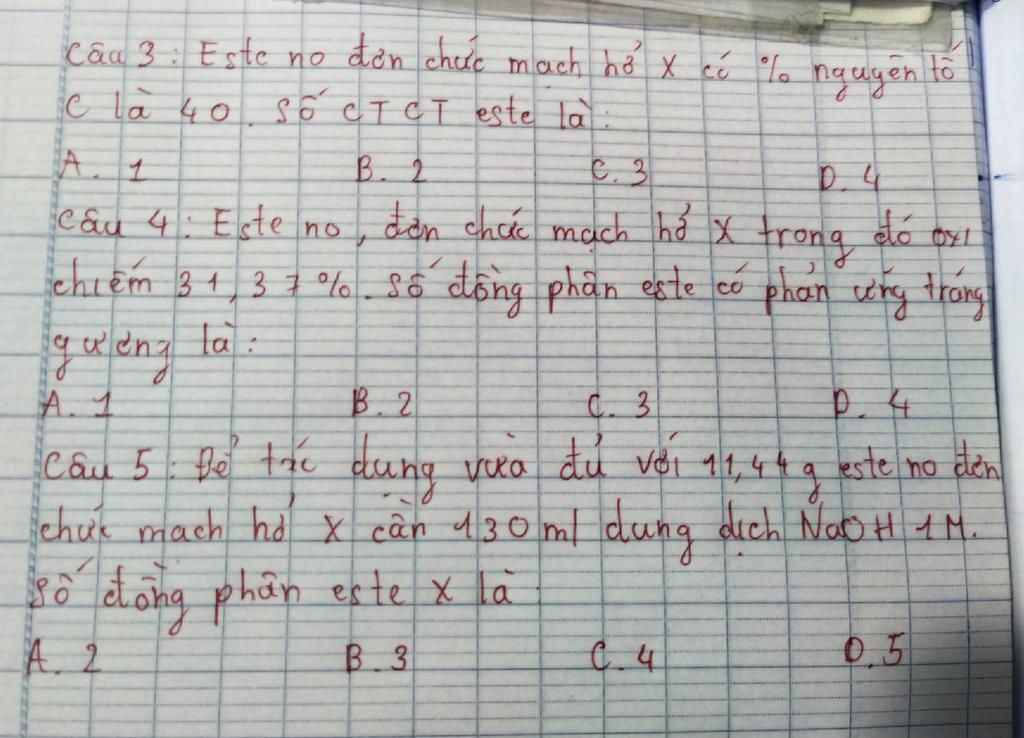 Câu 3: Este no đơn chức mạch hở X có % nguyên tố
C là 40. Số CTCT este là:
A. 1 B. 2 C. 3 D. 4
Câu 4: Este no, đơn chức mạch hở X trong đó oxi
chiếm 31,37%. Số đồng phân este có phản ứng tráng
gương là:
A. 1 B. 2 C. 3 D. 4
Câu 5: Để tác dụng vừa đủ với 11,44 g este no đơn
chức mạch hở X cần 130 ml dung dịch NaOH 1M.
Số đồng phân este X là:
A. 2 B. 3 C. 4 D. 5